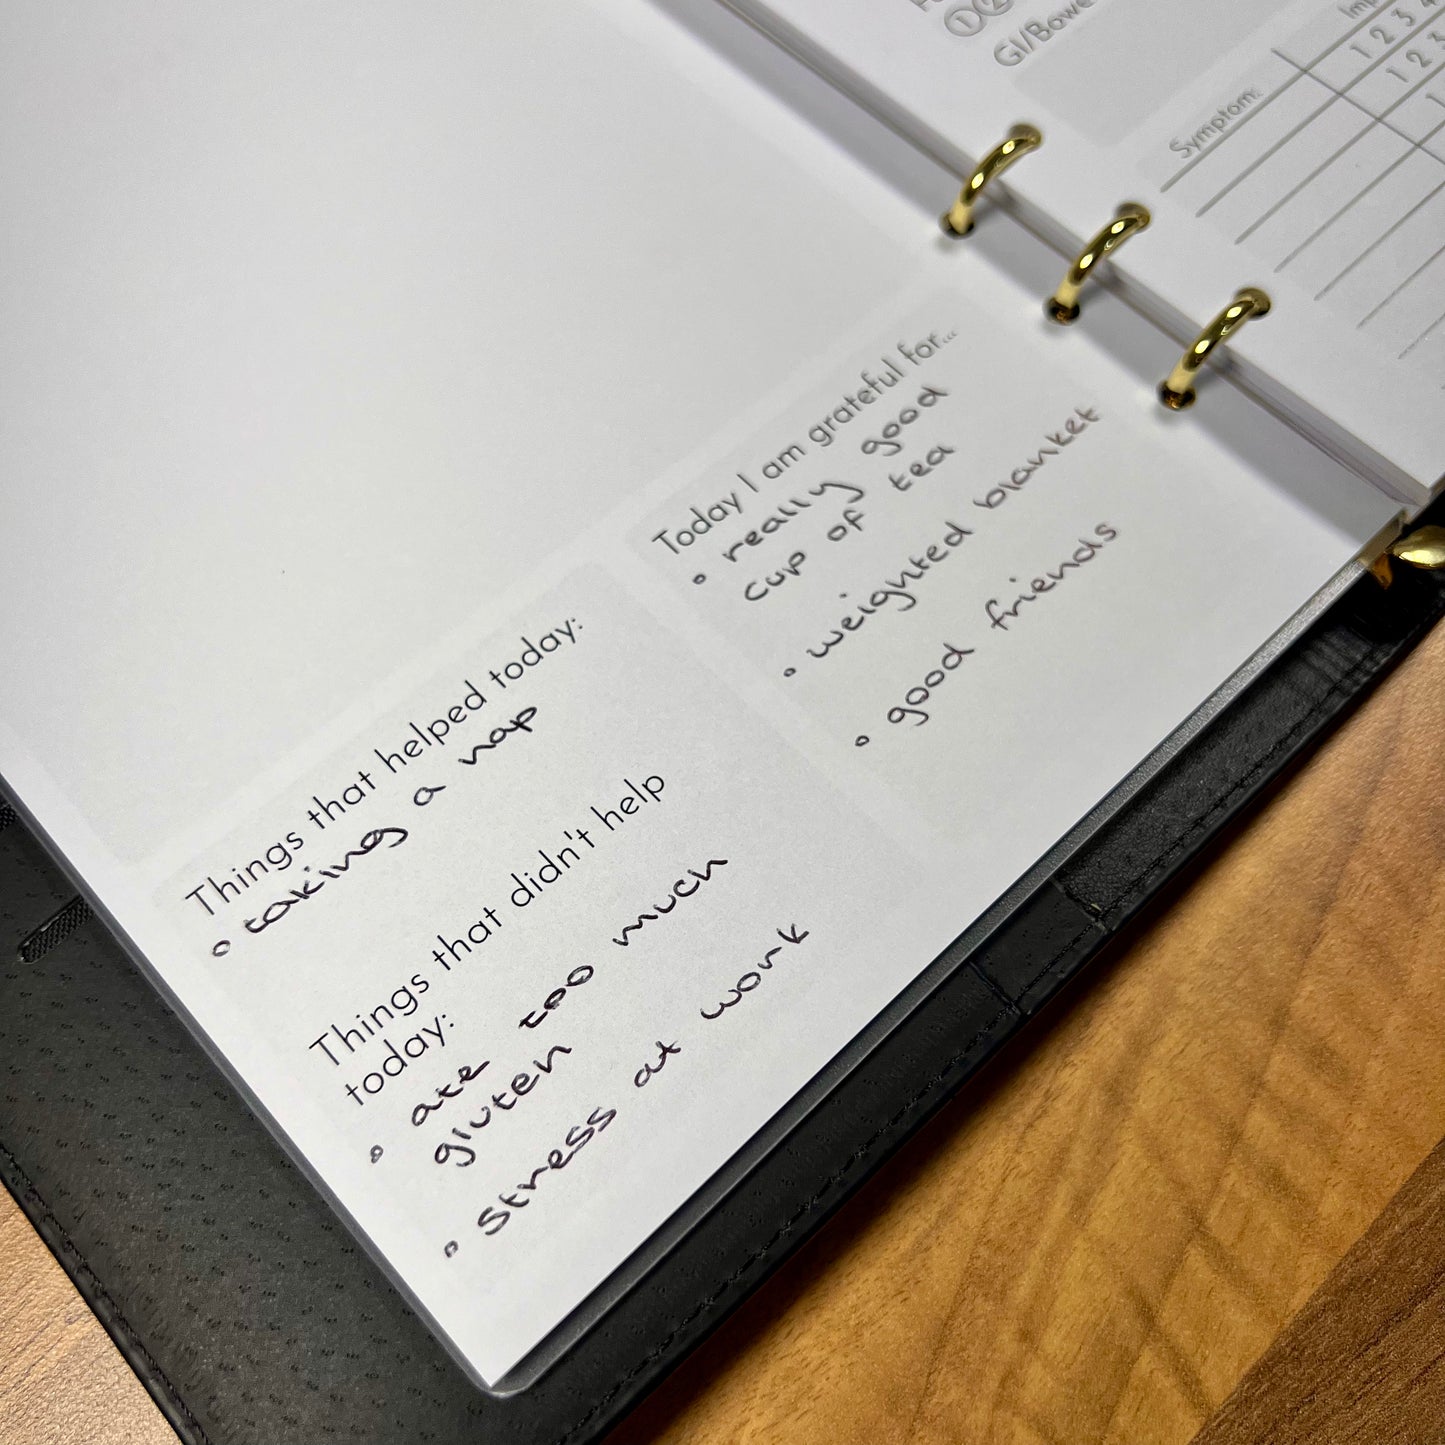 ①②
GI/Bowe
Symptom:
1 2 3 4
1 2 3
1
Today I am grateful for...
° really good
cup of tea
° weighted blanket
° good friends
Things that helped today:
° taking a nap
Things that didn't help
today:
° ate too much
gluten
° Stress at work